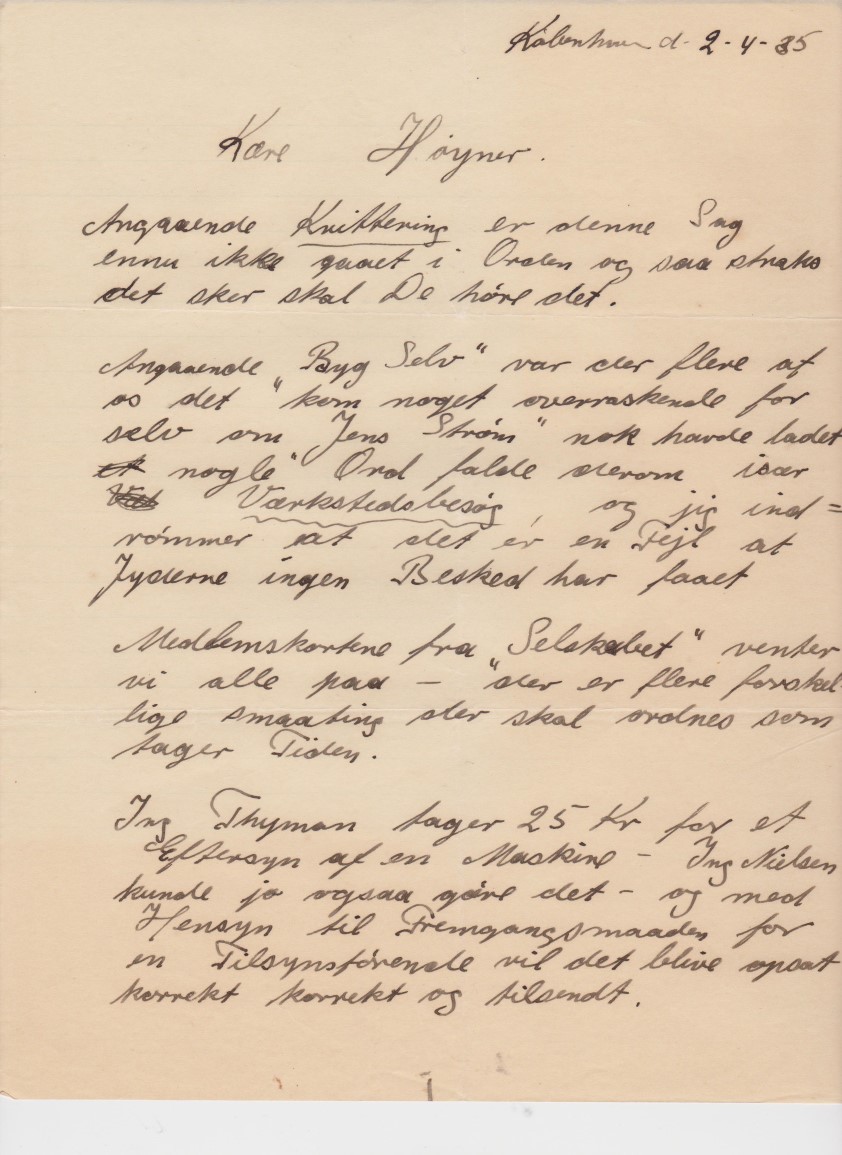 København d. 2-4-35
Kære Høyner.
Angaaende Kvittering er denne Sag
ennu ikke gaaet i Orden og saa straks
det sker skal De høre det.
Angaaende "Byg Selv" var der flere af
os det "kom noget overraskende for
selv om Jens Strøm" nok havde ladet
nogle" Ord falde derom især
Værkstedsbesøg, og jig ind=
rømmer at det er en Fejl at
Jyderne ingen Besked har faaet
Medlemskortene fra "Selskabet" venter
vi alle paa - "der er flere forskel-
lige smaating der skal ordnes som
tager Tiden.
Ing Thyman tager 25 Kr for et
Eftersyn af en Maskine - Ing Nielsen
kunde jo ogsaa gøre det - og med
Hensyn til Fremgangsmaaden for
en Tilsynsførende vil det blive opsat
korrekt korrekt og tilsendt.